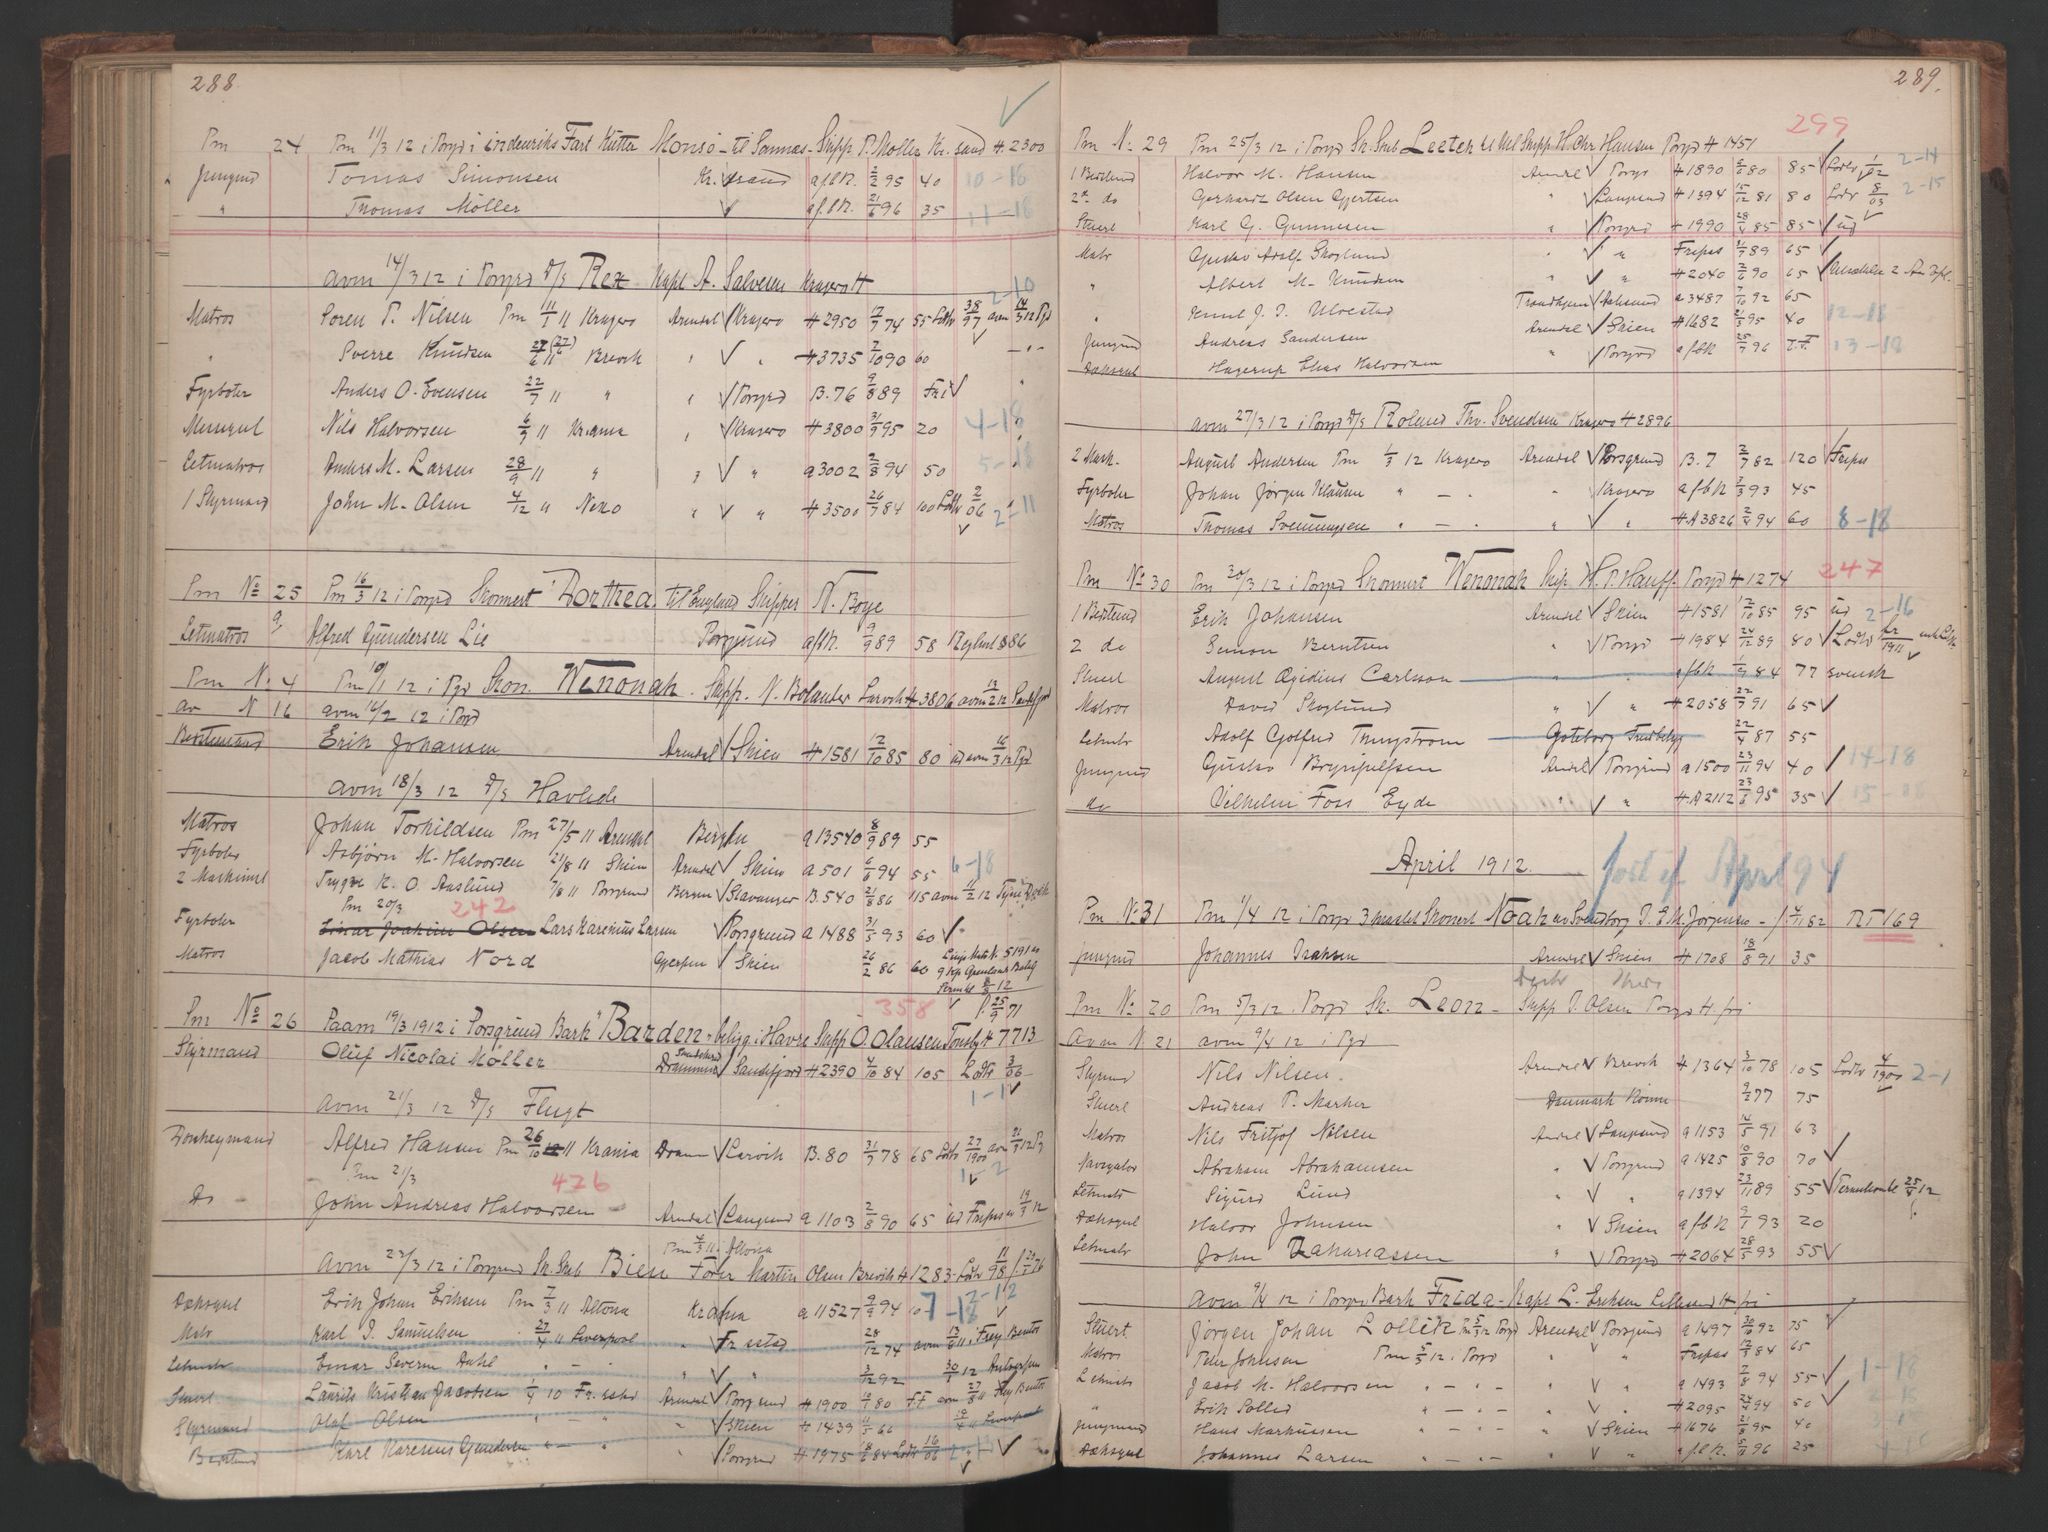 288
Pm 24 Pm 11/3 12 i Porsgr i indenriks Fart Kutter Monsö - til Sannæs - Skipp P. Moller Kr. sand H. 2300
Jungmd Tomas Simonsen Kr. sand afbR. 2/2 95 40 10-18
" Thomas Möller afbR. 21/6 96 35 11-18
avm 14/3 12 i Porsgr D/S Rex Kapt A. Salvesen Kragerö H
Matros Soren P. Nilsen Pm 11/1 11 Kragerø Arendal Kragerø H 2950 17/7 74 55 Ldtr 38/97 avm 14/3 12 Pgr 2-10
" Sverre Knudsen 27/6 11 Brevik " " H 3735 2/10 90 60
Fyrbøter Anders O. Evensen 22/7 11 " " Porsgrd B. 76 9/8 89 Fri
Messegut Nils Halvorsen 6/9 11 Krania " Kragerø H 3800 31/7 95 20 4-18
Letmatros Anders M. Larsen 28/9 11 " " " a 3002 2/8 94 50 5-18
1 Styrmand John M. Olsen 4/12 11 " " H 3500 26/7 84 100 Ldtr 2/06 2-11
Pm No 25 Pm 16/3 12 i Porsgrd Skonnert "Dorthea" til England Skipper N. Boye
Letmatros Alfred Gundersen Lie Porsgrund afbR. 9/9 89 58
Pm N. 4 Pm 10/1 12 i Pgr Skon. Wenonah. Skipp. N. Bolander Larvik H 3806 avm 13/2 12
av N 16 avm 16/2 12 i Pgr
Bestemand Erik Johansen Arendal Skien H 1581 12/10 85 80 ud avm 16/3 12 Pgr
avm 18/3 12 D/S Havlide
Matros Johan Torkildsen Pm 27/5 11 Arendal Bergen a 13540 8/9 89 55
Fyrbøter Asbjörn M. Halvorsen 21/8 11 Skien Arendal Skien a 501 6/6 94 55 6-18
2 Maskinist Trygve K. O. Aaslund 7/8 11 Porsgrund Bergen Stavanger B. 540 21/8 86 115 avm 11/2 12
Pm 20/3 242
Fyrbøter Einar Joakim Olsen Lars Karenius Larsen Porsgrund a 1488 31/5 93 60
Matros Jacob Mathias Nord Gjerpen Skien 26/2 86 60
358 25/9 71
Pm No 26 Paam 19/3 1912 i Porsgrund Bark "Barden" - belig. i Havre Skipp O. Olausen Tønsbg H 7713
Styrmand Oluf Nicolai Möller Drammen Sandefjord H 2390 4/10 84 105 Ldtr 3/06
avm 21/3 12 D/S Flugt 1-1
Donkeymand Alfred Hansen Pm 26/10 11 Krania Dramn Larvik B. 80 31/7 78 65 Ldtr 27/1900 avm 21/3 12 Pg
Pm 21/3 476 1-2
Do - John Andreas Halvorsen Arendal Langesund a 1103 2/8 90 65
Pm 4/3 11 i Altona
avm 22/3 12 i Porsgrund Sk. Skib Bien Förer Martin Olsen Brevik H 1283 - Ldtr 11/98
Dæksgut Erik Johan Eriksen Pm 7/3 11 Altona Krania a 11527 9/9 94 10 7-18 2-12
Matr Karl I. Samuelsen 27/4 11 Liverpool " Fr.stad 28/12 74 avm 13/8 11 Frey Bentos
Letmatr Einar Severin Dahl " - " " 3/12 92 30/1 12
Stuert Laurits Kristian Jacobsen 1/4 10 Fr.stad Arendal Porsgrund H 1900 12/6 80 F.F avm 27/8 11 Frey Bentos
Styrmand Olaf Olsen " - " " Skien H 1439 11/5 66 19/4 11 Liverpool
Bestmd Karl Karenius Gundersen " - " " Porsgrd H 1975 18/6 84 Ldtr 16/06
289.
299
Pm N. 29 Pm 25/3 12 i Porsgr Sk. Skib Leeter til Skipp H. Chr Hansen Porsgr H 1451
1 Bestmd Halvor M. Hansen Arendal Porsgr H 1890 5/6 80 85 Ldtr 1/02 2-14
2n do Gerhardt Olsen Gjertsen " Langesund H 1394 15/12 81 80 Ldtr 8/03 2-15
Stuert Karl G. Gunnesen " Porsgrd H 1990 28/4 85 85 ud
Matr Gustav Adolf Skoglund " " Fripas 31/7 89 65
" Albert M. Knudsen " " H 2040 2/6 90 65
" Knut J. I. Ulvestad Trondhjem Aalesund a 3487 7/10 92 65
Jungmd Andreas Sandersen Arendal Skien H 1682 21/3 95 40 12-18
Dæksgut Hagerup Elias Halvorsen " Porsgrd afbR 25/7 96 13-18
avm 27/3 12 i Porsgr D/S Roland Thv. Svendsen Kragerø H 2896
2 Mask. August Andersen Pm 1/3 12 Kragerø Arendal Porsgrund B. 7 2/7 82 120 Fripas
Fyrbøter Johan Jørgen Klausen " - " " Kragerø afbR 3/3 93 45
Matros Thomas Svenningsen " - " " " H A 3826 2/4 94 60 8-18
Pm No 30 Pm 30/3 12 i Porsgrd Skonnert Wenonah Skip. H. P. Hauff. Porsgrd H 1274 247
1 Bestmd Erik Johansen Arendal Skien H 1581 12/10 85 95 ud 2-16
2 do Simon Berntsen " Porsgrd H 1984 24/12 89 80 Ldtr
Stuert August Egidius Carlsson " afbR 1/9 84 77 svensk
Matros David Skoglund " " H 2058 22/7 91 65
Letmatr Adolf Gotfred Goteborg 22/4 87 55
Jungmd Gustav Brynjulfsen Arendal Porsgrund a 1500 23/11 94 40 14-18
do Vilhelm Foss Eyde " " H A 2112 23/8 95 35 15-18
April 1912. født ef April 94
Pm N. 31 Pm 1/4 12 i Porsgr 3 mastet Skonert Noah av Svendborg J. E. M. Jørgensen - 4/11 82 RT 169
Jungmd Johannes Isaksen Arendal Skien H 1708 18/8 91 35
Pm No 20 Pm 5/3 12 i Porsgr Sk. Leon - Skipp J. Olsen Porsgr H. fri
Avm N. 21 avm 9/4 12 i Pgr
Styrmd Nils Nilsen. Arendal Brevik H 1364 3/10 78 105 Ldtr 4/1900 2-1
Stuert Andreas P. Marker Danmark Rönne 9/2 77 75
Matros Nils Fritjof Nilsen Arendal Langesund a 1153 14/5 91 63
Navigatør Abraham Abrahamsen " Porsgrund a 1425 10/8 90 70
Letmatr Sigurd Lund " " a 1394 23/11 89 55
Dæksgut Halvor Johnsen " Skien afbR 9/1 93 20
Letmatr John Zakariassen " Porsgrd H 2064 28/5 93 55
avm 9/4 12 i Porsgr Bark Frida - Kapt L. Eriksen Lillesand H fri
Stuert. Jörgen Johan Lollik Pm 5/3 12 Porsgr Arendal Porsgrund a 1497 30/10 92 75
Matros Peter Johnsen Pm 5/3 12 i Porsgr " " Fripas 12/3 84 65
Letmatr Jacob M. Halvorsen " - " - " " " a 1493 7/8 94 55 1-18
" Erik Solli " - " - " " " H 2095 24/4 94 50
Jungmand Hans Markussen " - " - " " Skien H 1676 21/8 95 40
Dæksgut Johannes Larsen " - " - " " " afbR. 5/11 96 25